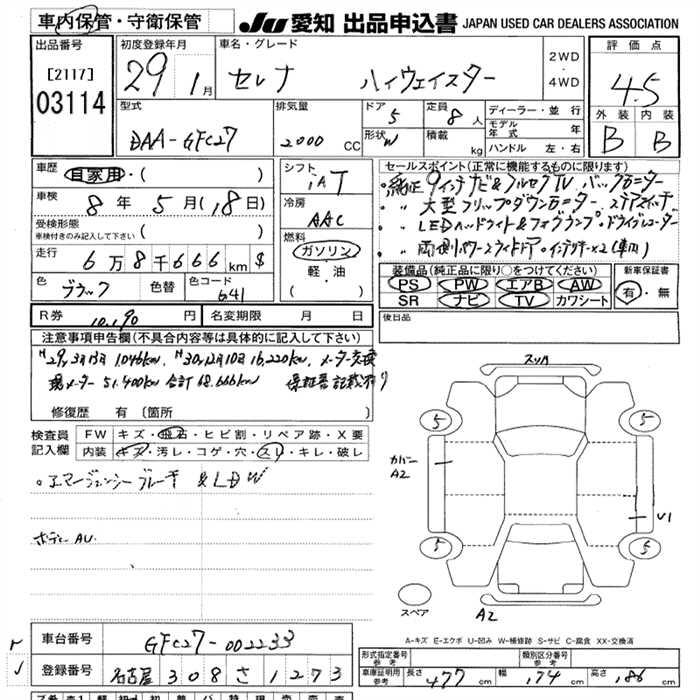 車内保管・守衛保管 JU 愛知 出品申込書 JAPAN USED CAR DEALERS ASSOCIATION
出品番号 [2117] 03114
初度登録年月 29 1月
車名・グレード セレナ ハイウェイスター 2WD・4WD
評価点 4.5
外装 B 内装 B
型式 DAA-GFC27
排気量 2000 CC
ドア 5 形状 W
定員 8人 積載 kg
ディーラー・並行
モデル年式 年
ハンドル 左・右
車歴 自家用・( )
車検 8年 5月(18日)
受検形態 車検付きのみ記入して下さい ( )
走行 6万8千666km $
色 ブラック 色替 色コード G41
シフト iAT
冷房 AAC
燃料 ガソリン 軽・油 ・( )
セールスポイント(正常に機能するものに限ります)
・純正9インチナビ&フルセグTV バックカメラ
・〃 大型フリップダウンモニター ステアスイッチ
・〃 LEDヘッドライト&フォグランプ・ドライブレコーダー
・〃 両側パワースライドドア・インテリキー×2(車内)
装備品(純正品に限り○をつけてください) 新車保証書
PS PW エアB AW 有・無
SR ナビ TV カワシート
R券 10,190 円 名変期限 月 日
後日品
注意事項申告欄(不具合内容等は具体的に記入して下さい)
H29年3月13日 1,046km、H30年12月10日 16,220km、メーター交換
現メーター 51,400km 合計 68,666km 保証書記載有り
修復歴 有 (箇所 )
検査員記入欄 FW キズ・飛石・ヒビ割・リペア跡・X要
内装 キズ・汚レ・コゲ・穴・スレ・キレ・破レ
・エマージェンシーブレーキ &LDW
ボディーAU.
スリハ
5 5
カバー A2
U1
5 5
スペア A2
A-キズ E-エクボ U-凹み W-補修跡 S-サビ C-腐食 XX-交換済
車台番号 GFC27-002233
登録番号 名古屋 308 さ 1273
形式指定番号 参考 類別区分番号 参考
車庫証明用 参考 長さ 477cm 幅 174cm 高さ 186cm